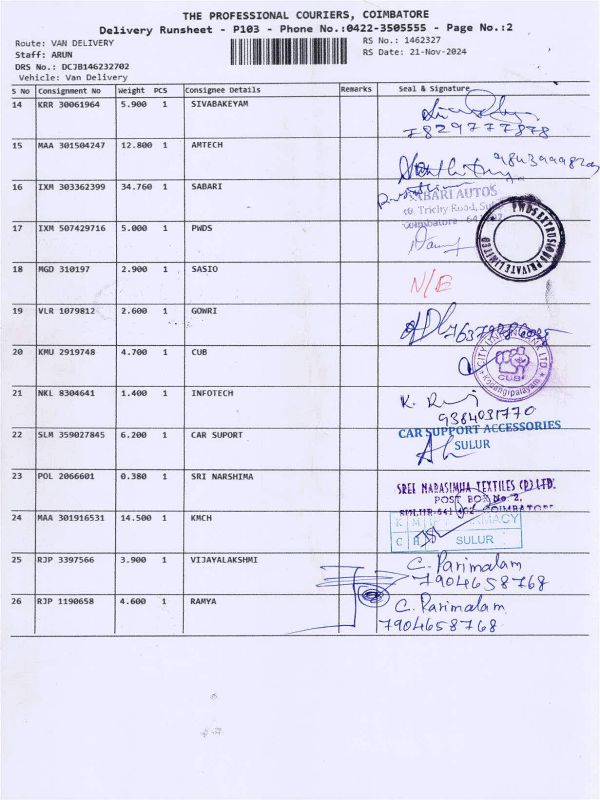 THE PROFESSIONAL COURIERS, COIMBATORE
Delivery Runsheet - P103 - Phone No.:0422-3505555 - Page No.:2
Route: VAN DELIVERY RS No.: 1462327
Staff: ARUN RS Date: 21-Nov-2024
DRS No.: DCJB146232702
Vehicle: Van Delivery
S No Consignment No Weight PCS Consignee Details Remarks Seal & Signature
14 KRR 30061964 5.900 1 SIVABAKEYAM
7829777878
15 MAA 301504247 12.800 1 AMTECH
16 IXM 303362399 34.760 1 SABARI
SABARI AUTOS
Trichy Road, Sulur
Coimbatore
17 IXM 507429716 5.000 1 PWDS
PWDS EXTRUSIONS PRIVATE LIMITED
18 MGD 310197 2.900 1 SASIO N/E
19 VLR 1079812 2.600 1 GOWRI
20 KMU 2919748 4.700 1 CUB
CITY UNION BANK LTD.
CUB
21 NKL 8304641 1.400 1 INFOTECH
9384031770
22 SLM 359027845 6.200 1 CAR SUPORT
CAR SUPPORT ACCESSORIES
SULUR
23 POL 2066601 0.380 1 SRI NARSHIMA
SREE NARASIMHA TEXTILES (P) LTD.
POST BOX No. 2,
SULUR-641 402 COIMBATORE
24 MAA 301916531 14.500 1 KMCH
K M PHARMACY
C H SULUR
25 RJP 3397566 3.900 1 VIJAYALAKSHMI
C. Parimalam
7904658768
26 RJP 1190658 4.600 1 RAMYA
C. Parimalam
7904658768